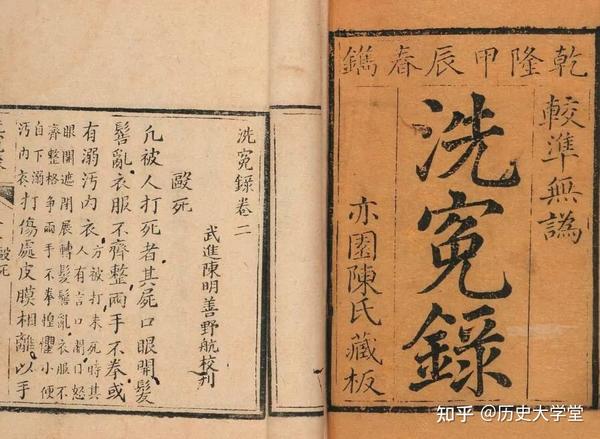 乾隆甲辰春鐫
較準無譌
洗寃錄
亦園陳氏藏板
洗寃錄卷二
武進陳明善野航校刊
毆死
凢被人打死者其屍口眼開髮
髻亂衣服不齊整兩手不拳或
有溺汚內衣方被打未死時其
人有言口開怒
眼開遮閉展轉髮髻亂衣服不
齊整格爭兩手不拳惶懼小便
自下溺
汚內衣打傷處皮膜相離以手
毆死
知乎 @历史大学堂